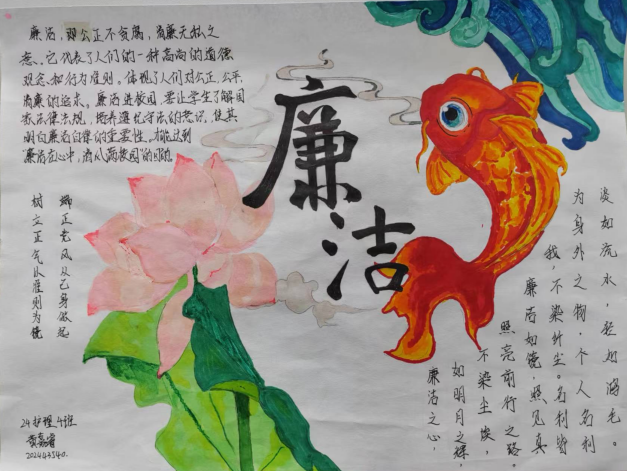 廉洁,即公正不贪腐,清廉无私之
意、它代表了人们的一种高尚的道德
观念和行为准则。体现了人们对公正、公平
清廉的追求。廉洁进校园,要让学生了解国
家法律法规,培养遵纪守法的意识,使其
明白廉洁自律的重要性。才能达到
廉洁在心中,清风满校园"的目的
廉洁
端正党风从己身做起
树立正气以准则为镜
淡如流水,轻如鸿毛。
为身外之物,个人名利
我,不染纤尘。名利皆
廉洁如镜,照见真
照亮前行之路
不染尘埃,
如明月之辉,
廉洁之心,
24护理4班